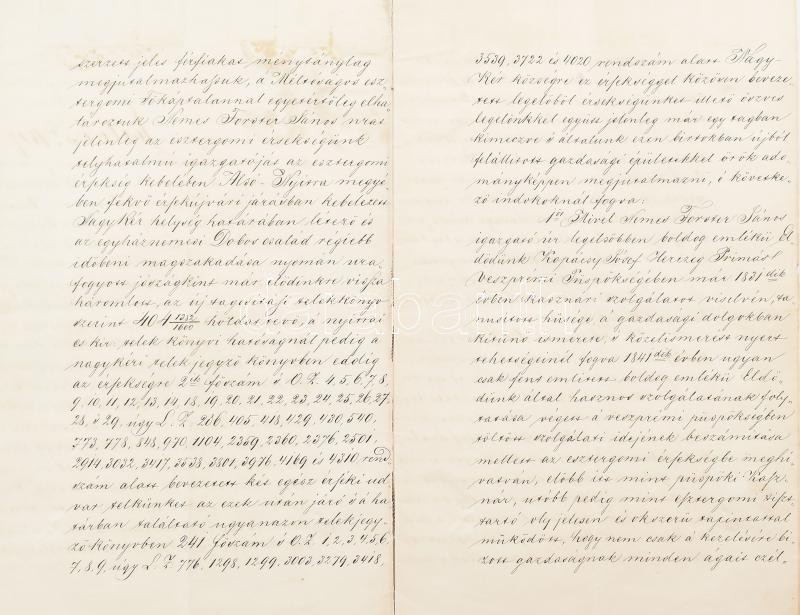 szerzett jeles férfiakat ménytánylag
megjutalmazhassuk, a Méltóságos esz-
tergomi Főkáptalannal egyetértőleg elha-
tároztuk Nemes Forster János urat
jelenleg az esztergomi érsekségünk
teljhatalmú igazgatóját az esztergomi
érsekség kebelében Alsó-Nyitra megyé-
ben fekvő érsekújvári járásban kebelezett
Nagy Kér helység határában létező és
az egyháznemesi Dobos család régiebb
időbeni magszakadása nyomán ura-
fogyott jószágként már elődinkre vissza
háromlott, az új tagositási telekkönyv
szerint 404 1232/1600 holdat tevő, a nyitrai
es kir. telek könyvi hatóságnál pedig a
nagykéri telek jegyző könyvben eddig
az érsekségre 2ik főszám s O. Z. 4, 5, 6, 7, 8,
9, 10, 11, 12, 13, 14, 18, 19, 20, 21, 22, 23, 24, 25, 26, 27,
28, s 29, úgy L. Z. 286, 405, 418, 429, 430, 540,
773, 778, 848, 970, 1104, 2359, 2360, 2376, 2501,
2914, 3032, 3417, 3538, 3801, 3976, 4169 és 4310 rend
szám alatt bevezetett két egész érseki ud-
var telkünket az ezek után járó s a ha-
tárban található ugyanazon telekjegy-
zőkönyvben 241 főszám s O. Z. 1, 2, 3, 4, 5, 6,
7, 8, 9, úgy L. Z. 776, 1298, 1299, 3003, 3279, 3418,
3539, 3722 és 4020 rendszám alatt Nagy-
Kér községre és érsekséggel közösen beveze-
tett legelőből érsekségünket illető összes
legelőnkkel együtt jelenleg már egy tagban
kimeczve s általunk ezen birtokban újból
felállitott gazdasági épületekkel örök ado-
mányképpen megjutalmazni, s követke-
ző indokoknál fogva:
1ör Mivel Nemes Forster János
igazgató úr legelsőbben boldog emlékű El-
dődünk Kopácsy Jósef Herczeg Primás
Veszprémi Püspökségében már 1831dik
évben kasznári szolgálatot viselvén, ta-
nusitott hűsége, a gazdasági dolgokban
kitűnő ismerete, s közelismerést nyert
tehetségeinél fogva 1841dik évben ugyan
csak fent emlitett boldog emlékű Eldő-
dünk által hasznos szolgálatának foly-
tatása végett a veszprémi püspökségben
töltött szolgálati idejének beszámitása
mellett az esztergomi érsekségbe meghi-
vatván, előbb itt mint püspöki Kasz-
nár, utóbb pedig mint esztergomi tiszt-
tartó oly jelesen és okszerű tapintattal
működött, hogy nem csak a kezelésére bi-
zott gazdaságnak minden ágait czél-